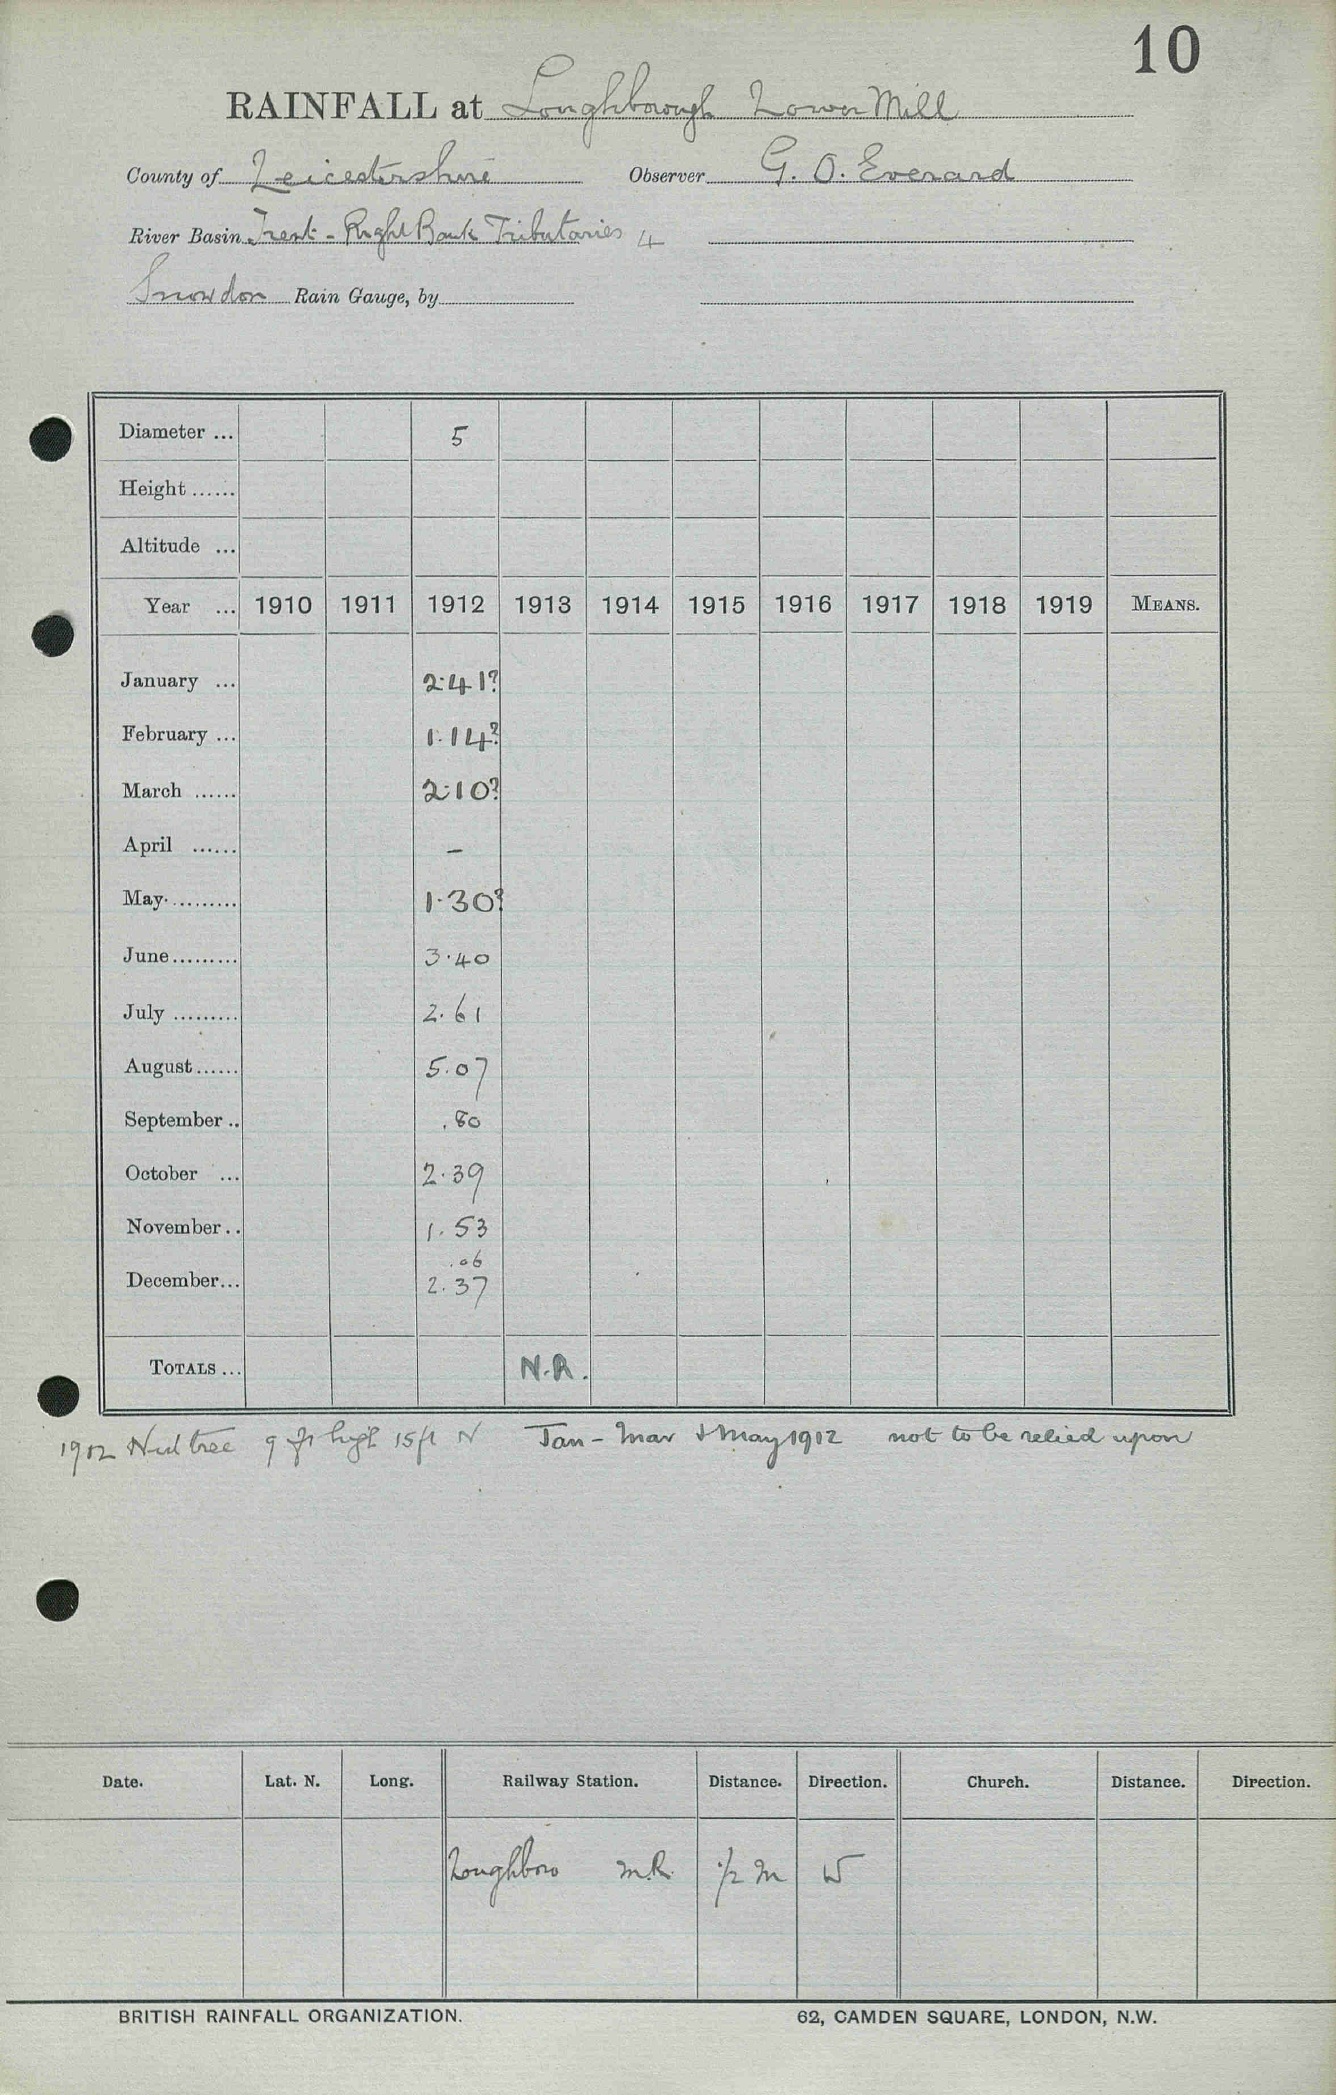 10
RAINFALL at Loughborough Lower Mill
County of Leicestershire Observer G. O. Everard
River Basin Trent - Right Bank Tributaries 4
Snowdon Rain Gauge, by
Diameter ... 5
Height ......
Altitude ...
Year ... 1910 1911 1912 1913 1914 1915 1916 1917 1918 1919 MEANS.
January ... 2.41?
February ... 1.14?
March ...... 2.10?
April ...... –
May ......... 1.30?
June ......... 3.40
July ......... 2.61
August ...... 5.07
September .. .80
October ... 2.39
November .. 1.53
.06
December ... 2.37
TOTALS ... N.R.
1912 Nut tree 9 ft high 15 ft N Jan - Mar & May 1912 not to be relied upon
Date. Lat. N. Long. Railway Station. Distance. Direction. Church. Distance. Direction.
Loughboro M.R. 1/2 m W
BRITISH RAINFALL ORGANIZATION. 62, CAMDEN SQUARE, LONDON, N.W.